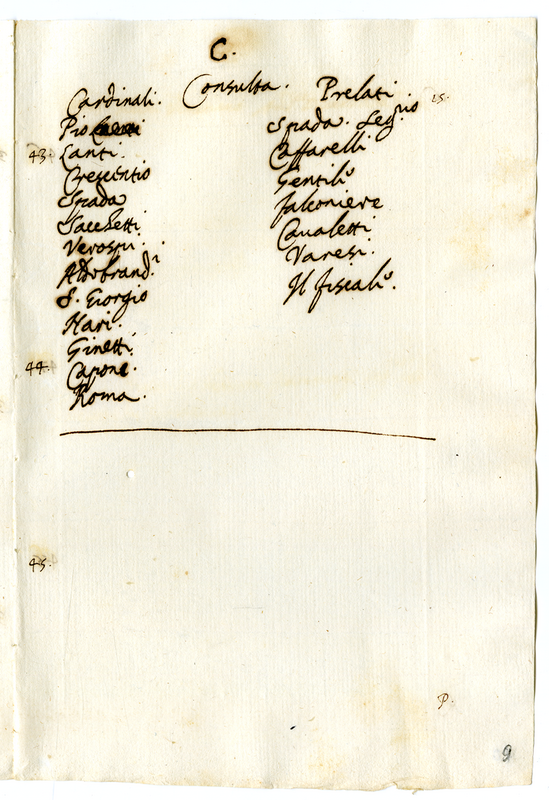 C.
Consulta.
Cardinali.
Pio
43. Lanti.
Crescentio
Spada
Sacchetti.
Verospi.
Aldobrand.i
S. Giorgio
Mari.
Ginetti.
44. Capone.
Roma.
45.
Prelati. 15.
Spada. Seg.rio
Caffarelli
Gentili.
falconiere
Caualetti
Varesi.
Il fiscal.
P.
9